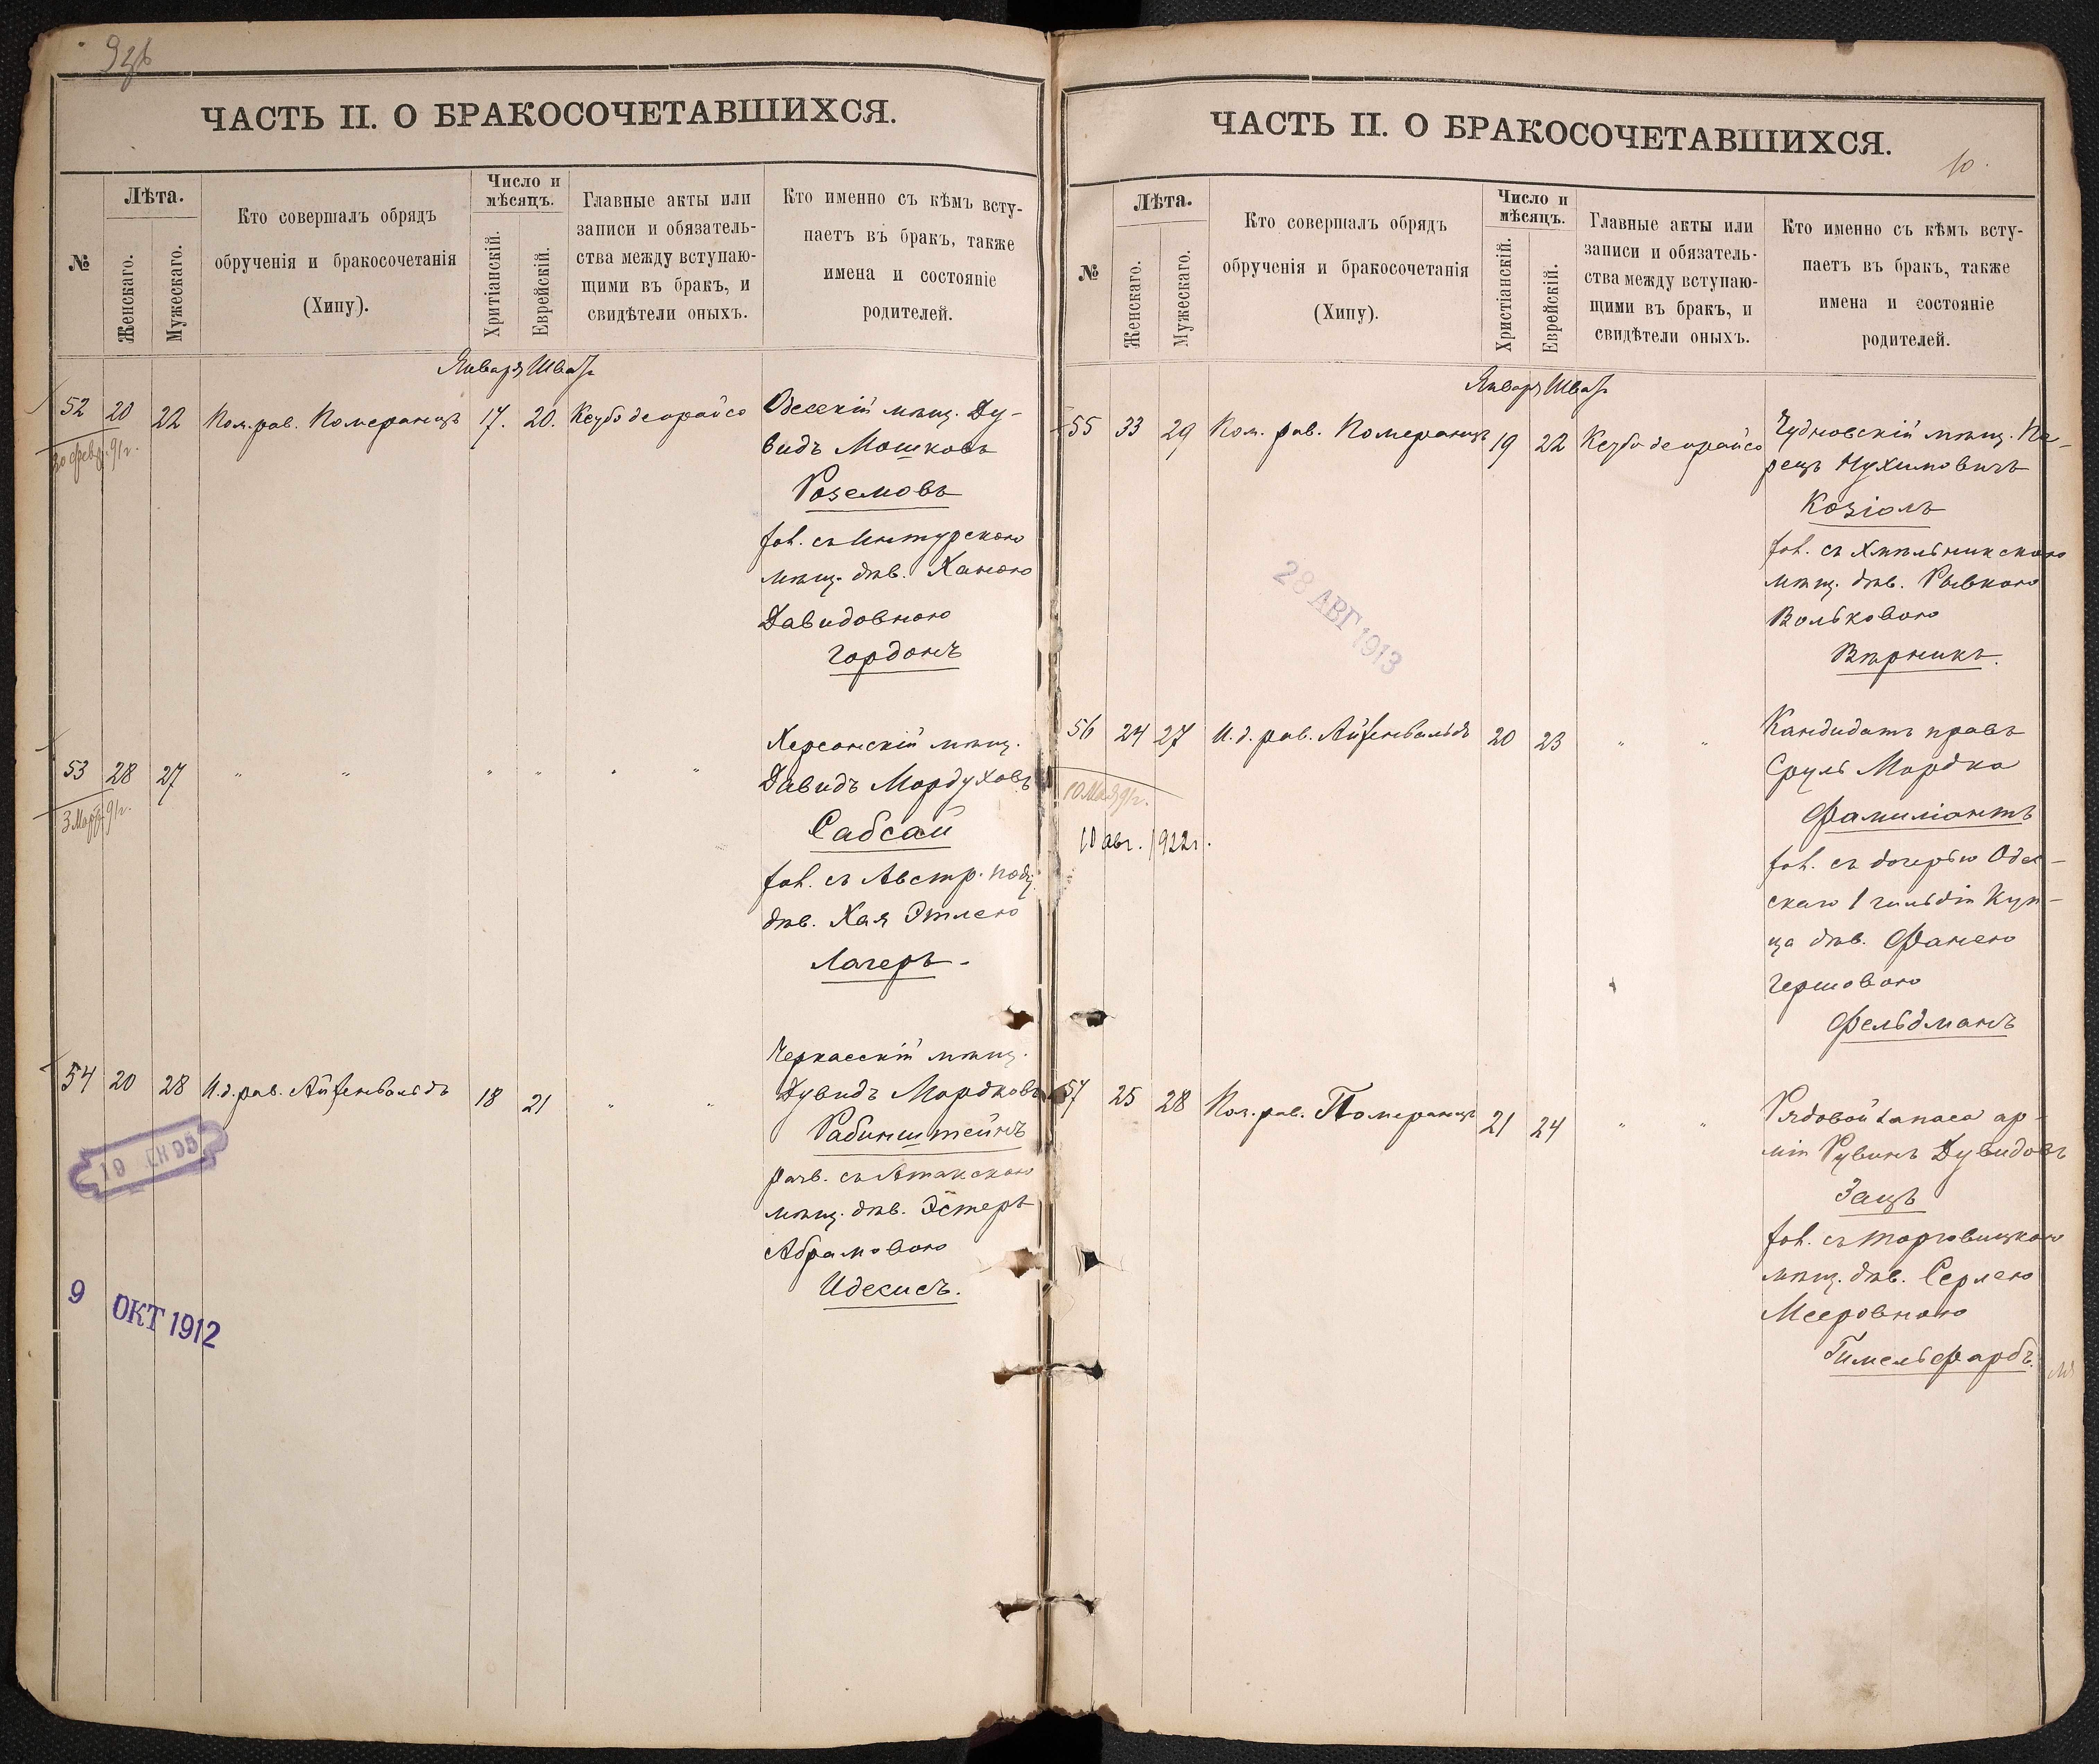 ЧАСТЬ II. О БРАКОСОЧЕТАВШИХСЯ.
№
Лѣта.
Женскаго.
Мужескаго.
Кто совершалъ обрядъ
обрученія и бракосочетанія
(Хипу).
Число и
мѣсяцъ.
Хритіанскій.
Еврейскій.
Главные акты или
записи и обязатель-
ства между вступаю-
щими въ бракъ, и
свидѣтели оныхъ.
Кто именно съ кѣмъ всту-
паетъ въ бракъ, также
имена и состояніе
родителей.
Января Шватъ
52 20 22 Каз. рав. Померанцъ 17. 20. Кезубо деорайсо
Одесскій мѣщ. Ду-
видъ Мошковъ
Роземовъ
хол. съ
мѣщ. дѣв. Ханою
Давидовною
Гордонъ
53 28 27 " " " " " "
3 Марта 91г.
Херсонскій мѣщ.
Давидъ Мордуховъ
Сабсай
хол. съ Австр. под.
дѣв. Хая Этлею
Лагеръ.
54 20 28 И.д. рав. Айзенвальдъ 18 21 " "
Черкасскій мѣщ.
Дувидъ Мордковъ
Рабинштейнъ
разв. съ Атакскою
мѣщ. дѣв. Эстеръ
Абрамовою
Идекисъ.
9 ОКТ 1912
ЧАСТЬ II. О БРАКОСОЧЕТАВШИХСЯ.
10.
№
Лѣта.
Женскаго.
Мужескаго.
Кто совершалъ обрядъ
обрученія и бракосочетанія
(Хипу).
Число и
мѣсяцъ.
Христіанскій.
Еврейскій.
Главные акты или
записи и обязатель-
ства между вступаю-
щими въ бракъ, и
свидѣтели оныхъ.
Кто именно съ кѣмъ всту-
паетъ въ бракъ, также
имена и состояніе
родителей.
Января Шватъ
55 33 29 Каз. рав. Померанцъ 19 22 Кезубо деорайсо
Чудновскій мѣщ. Пе-
рецъ Нухимовичъ
Козіолъ
хол. съ Хмѣльникскою
мѣщ. дѣв. Рывкою
Вольковою
Вѣрникъ.
28 АВГ 1913
56 24 27 И.д. рав. Айзенвальдъ 20 23 " "
10 Мая 91г.
10 авг. 1922г.
Кандидатъ правъ
Сруль Мордко
Фамиліантъ
хол. съ дочерью Одес-
скаго 1 гильдіи Куп-
ца дѣв. Фанею
Гершовою
Фельдманъ
57 25 28 Каз. рав. Померанцъ 21 24 " "
Рядовой запаса ар-
міи Рувинъ Дувидовъ
Зацъ
хол. съ Торговицкою
мѣщ. дѣв. Серлею
Мееровною
Гимельфарбъ.